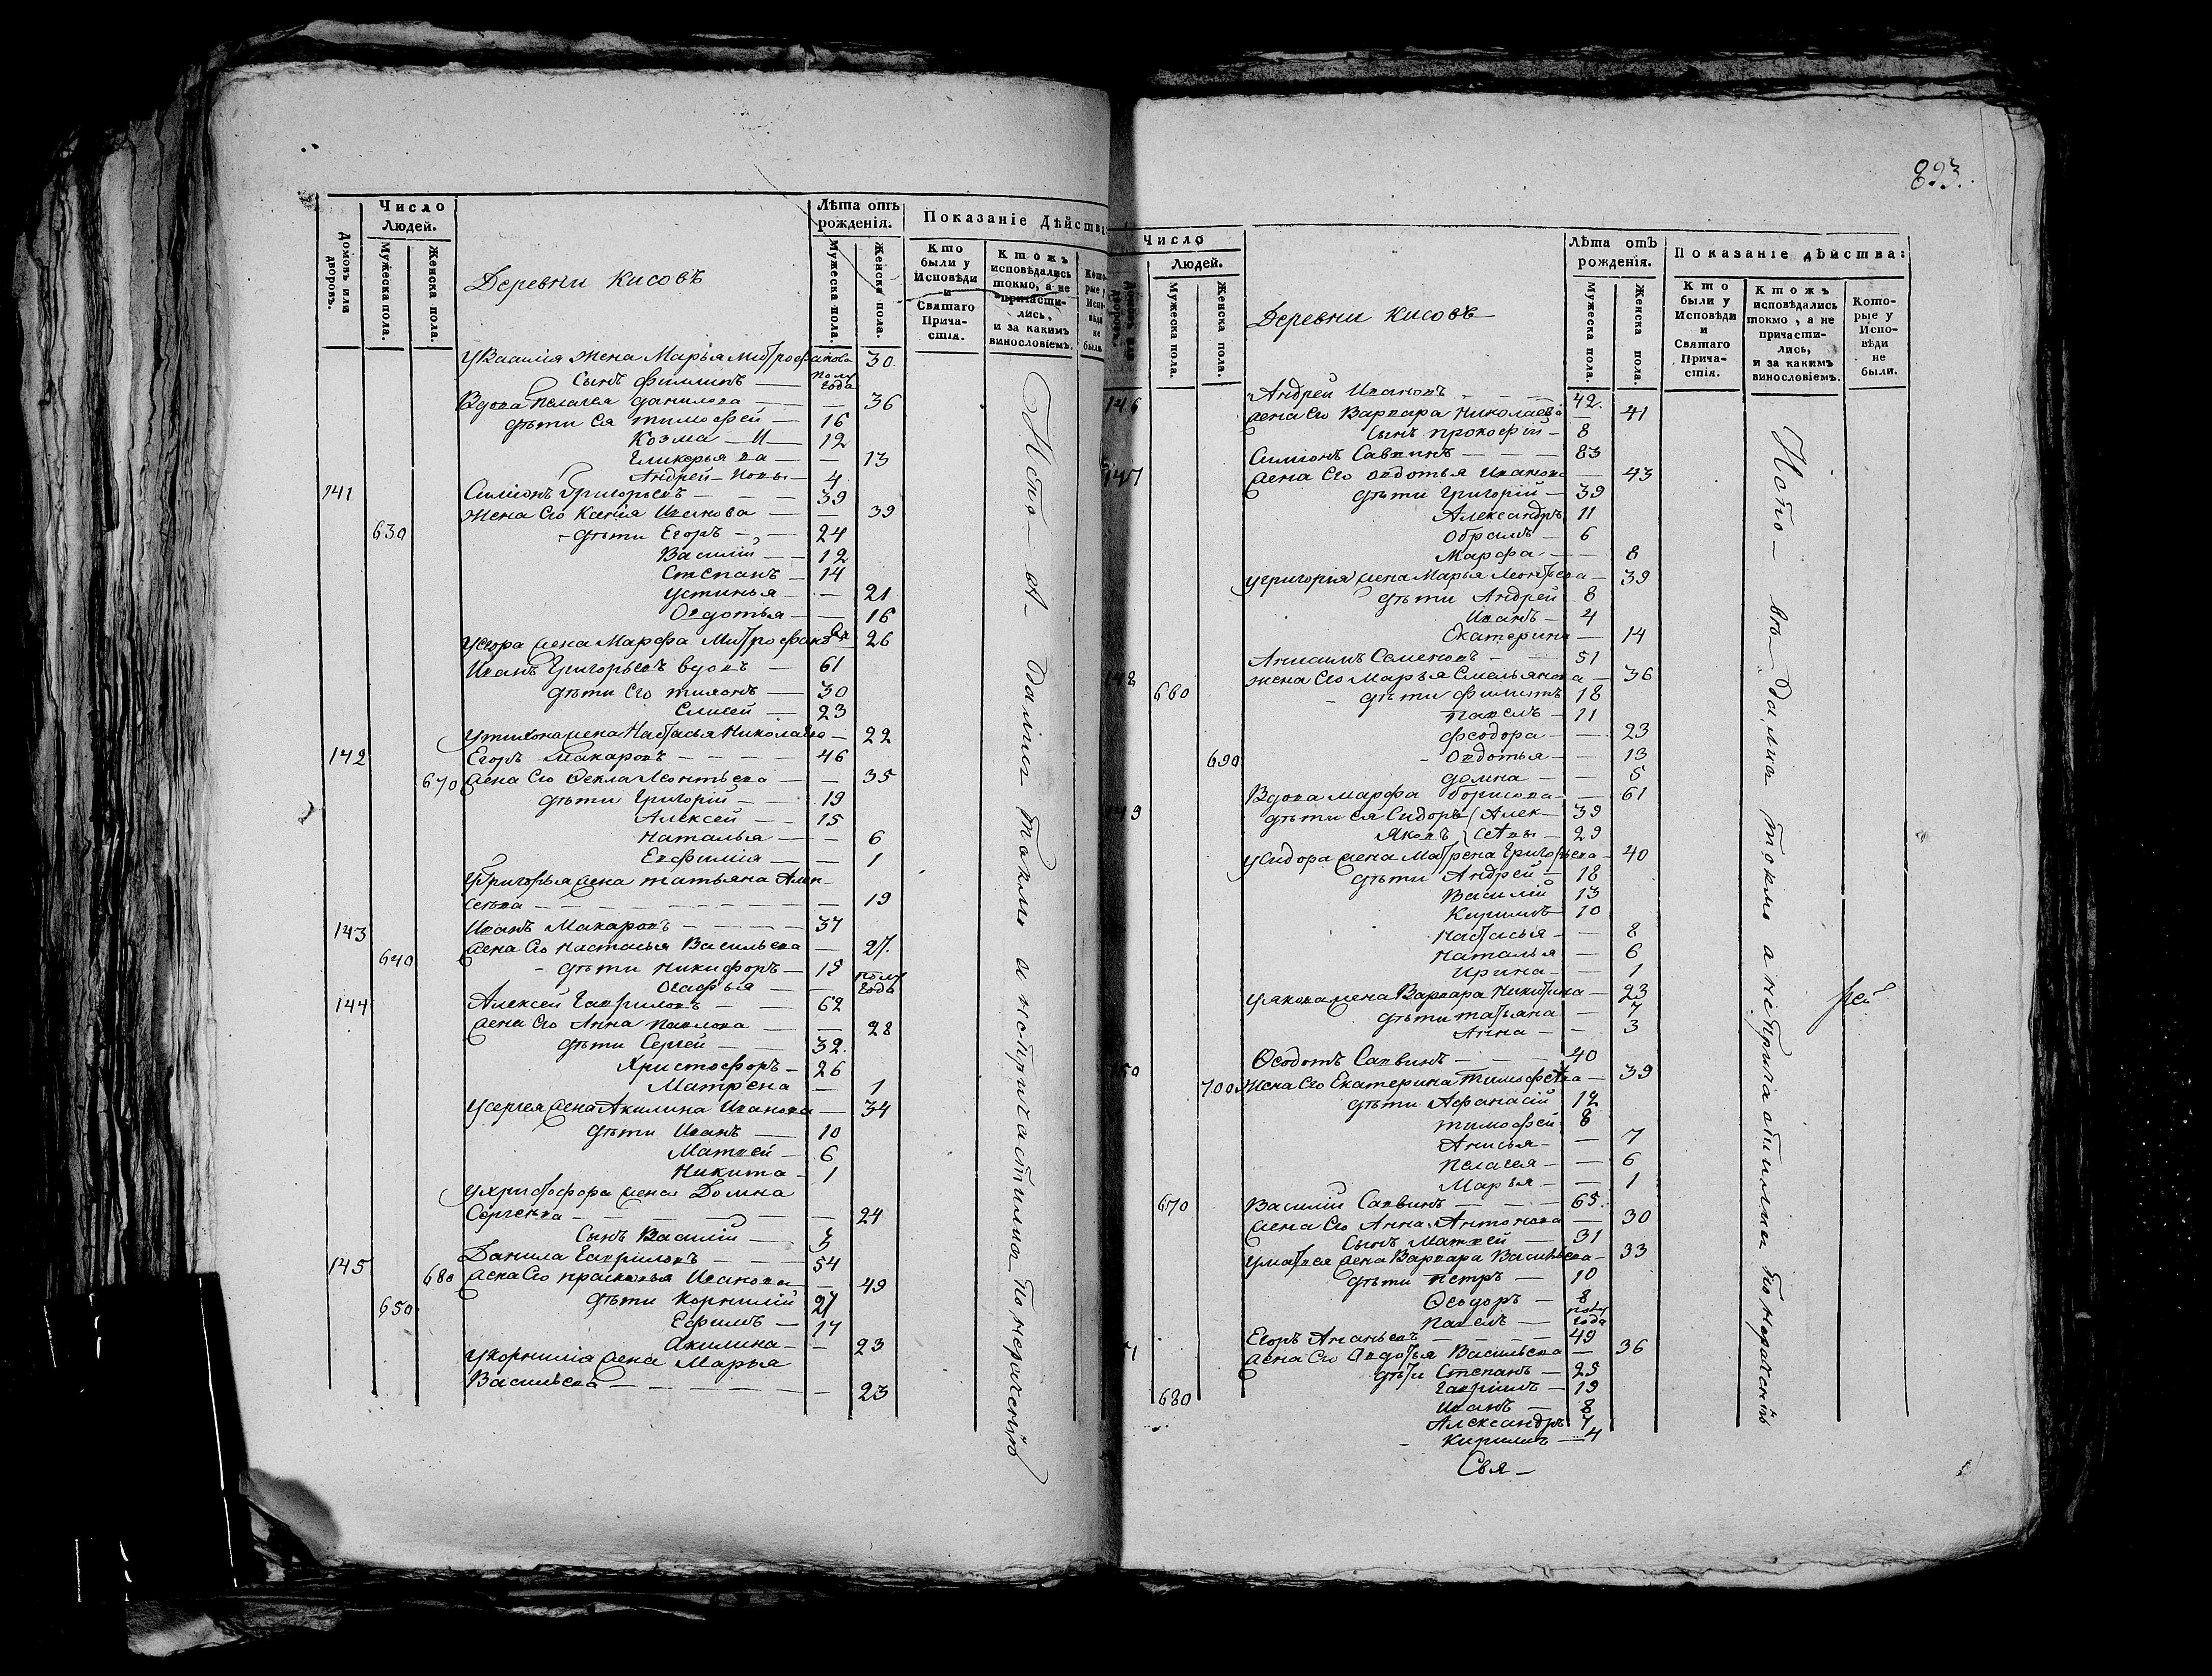 893.
Домовъ или дворовъ.
Число Людей.
Мужеска пола.
Женска пола.
Деревни Кисовъ
Лѣта отъ рожденія.
Мужеска пола.
Женска пола.
Показаніе Дѣйства
Кто были у Исповѣди и Святаго Причастія.
Ктожъ исповѣдались токмо, а не причастились, и за какимъ винословіемъ.
У Василія жена Марья Митрофанова 30
Сынъ Филипъ — полу года
Вдова Пелагея Данилова — — 36
дѣти ея Тимофей — 16
Козма — 12
Гликерья — — 13
Андрей — 4
141 Симіонъ Григорьевъ — — — 39
Жена его Ксенія Иванова — — 39
630 дѣти Егоръ — 24
Василій — — 12
Степанъ — 14
Устинья — — 21
Овдотья — — 16
У Егора жена Марфа Митрофанова 26
Иванъ Григорьевъ вдовъ — 61
дѣти его Тихонъ — 30
Елисей — 23
У Тихона жена Настасья Николаева — 22
142 Егоръ Макаровъ — — — — 46
670 жена его Фекла Леонтьева — — 35
дѣти Григорій — 19
Алексей — — 15
Наталья — — 6
Евфимія — — 1
У Григорья жена Татьяна Алек-
сеева — — — — 19
143 Иванъ Макаровъ — — — — 37
жена его Настасья Васильева — 27.
640 - дѣти Никифоръ — 15
Огафья — полу года
144 Алексей Гавриловъ — — 62
жена его Анна Павлова — — 28
дѣти Сергей — — 32.
Христофоръ — 26
Матрена — 1
У Сергея жена Акилина Иванова — 34
дѣти Иванъ — 10
Матвей — 6
Никита — 1
У Христофора жена Домна
Сергеева — — — — 24
Сынъ Василій — 3
145 Данила Гавриловъ — — — 54
680 жена его Прасковья Иванова — 49
650 дѣти Корнилій 27
Ефимъ — 17
Акилина — — 23
У Корнилія жена Марья
Васильева — — — — 23
Число Людей.
Мужеска пола.
Женска пола.
Деревни Кисовъ
Лѣта отъ рожденія.
Мужеска пола.
Женска пола.
Показаніе дѣйства:
Кто были у Исповѣди и Святаго Причастія.
Ктожъ исповѣдались токмо, а не причастились, и за какимъ винословіемъ.
Которые у Исповѣди не были.
146 Андрей Ивановъ — — — 42.
жена его Варвара Николаева 41
Сынъ Прокофій — 8
147 Симіонъ Савинъ — — — 83
жена его Овдотья Иванова — 43
дѣти Григорій — 39
Александръ 11
Обрамъ — 6
Марфа — — 8
У Григорія жена Марья Леонтьева — 39
дѣти Андрей 8
Иванъ — 4
Екатерина — 14
148 Анисимъ Семеновъ — — 51
жена его Марья Емельянова — 36
660 - дѣти Филипъ 18
Павелъ — 11
Феодора — — 23
690 - Овдотья — — 13
Домна — — 5
149 Вдова Марфа Борисова — — 61
дѣти ея Сидоръ (Алек— 39
Яковъ) сеевы — 29
У Сидора жена Матрена Григорьева — 40
дѣти Андрей — 18
Василій 13
Кирилъ 10
Настасья — — 8
Наталья — 6
Ирина — — 1
У Якова жена Варвара Никитина — 23
дѣти Татьяна — 7
Анна — — 3
150 Феодотъ Савинъ — — — 40
700 Жена его Екатерина Тимофеева — 39
дѣти Афанасій 12
Тимофей 8
Анисья — — 7
Пелагея — — 6
Марья — — 1
670 Василій Савинъ — — — 65.
жена его Анна Антонова — 30
Сынъ Матвей — 31
У Матвея жена Варвара Васильева — 33
дѣти Петръ — 10
Феодоръ — 8
Павелъ — полу года
Егоръ Ананьевъ — — — 49
жена его Авдотья Васильева — 36
дѣти Степанъ — 25
Гаврилъ — 19
680 Иванъ — 8
Александръ 7
- Кирилъ — 4
Свя —
Испо — вѣ — дались токмо а непричастились по нерачені